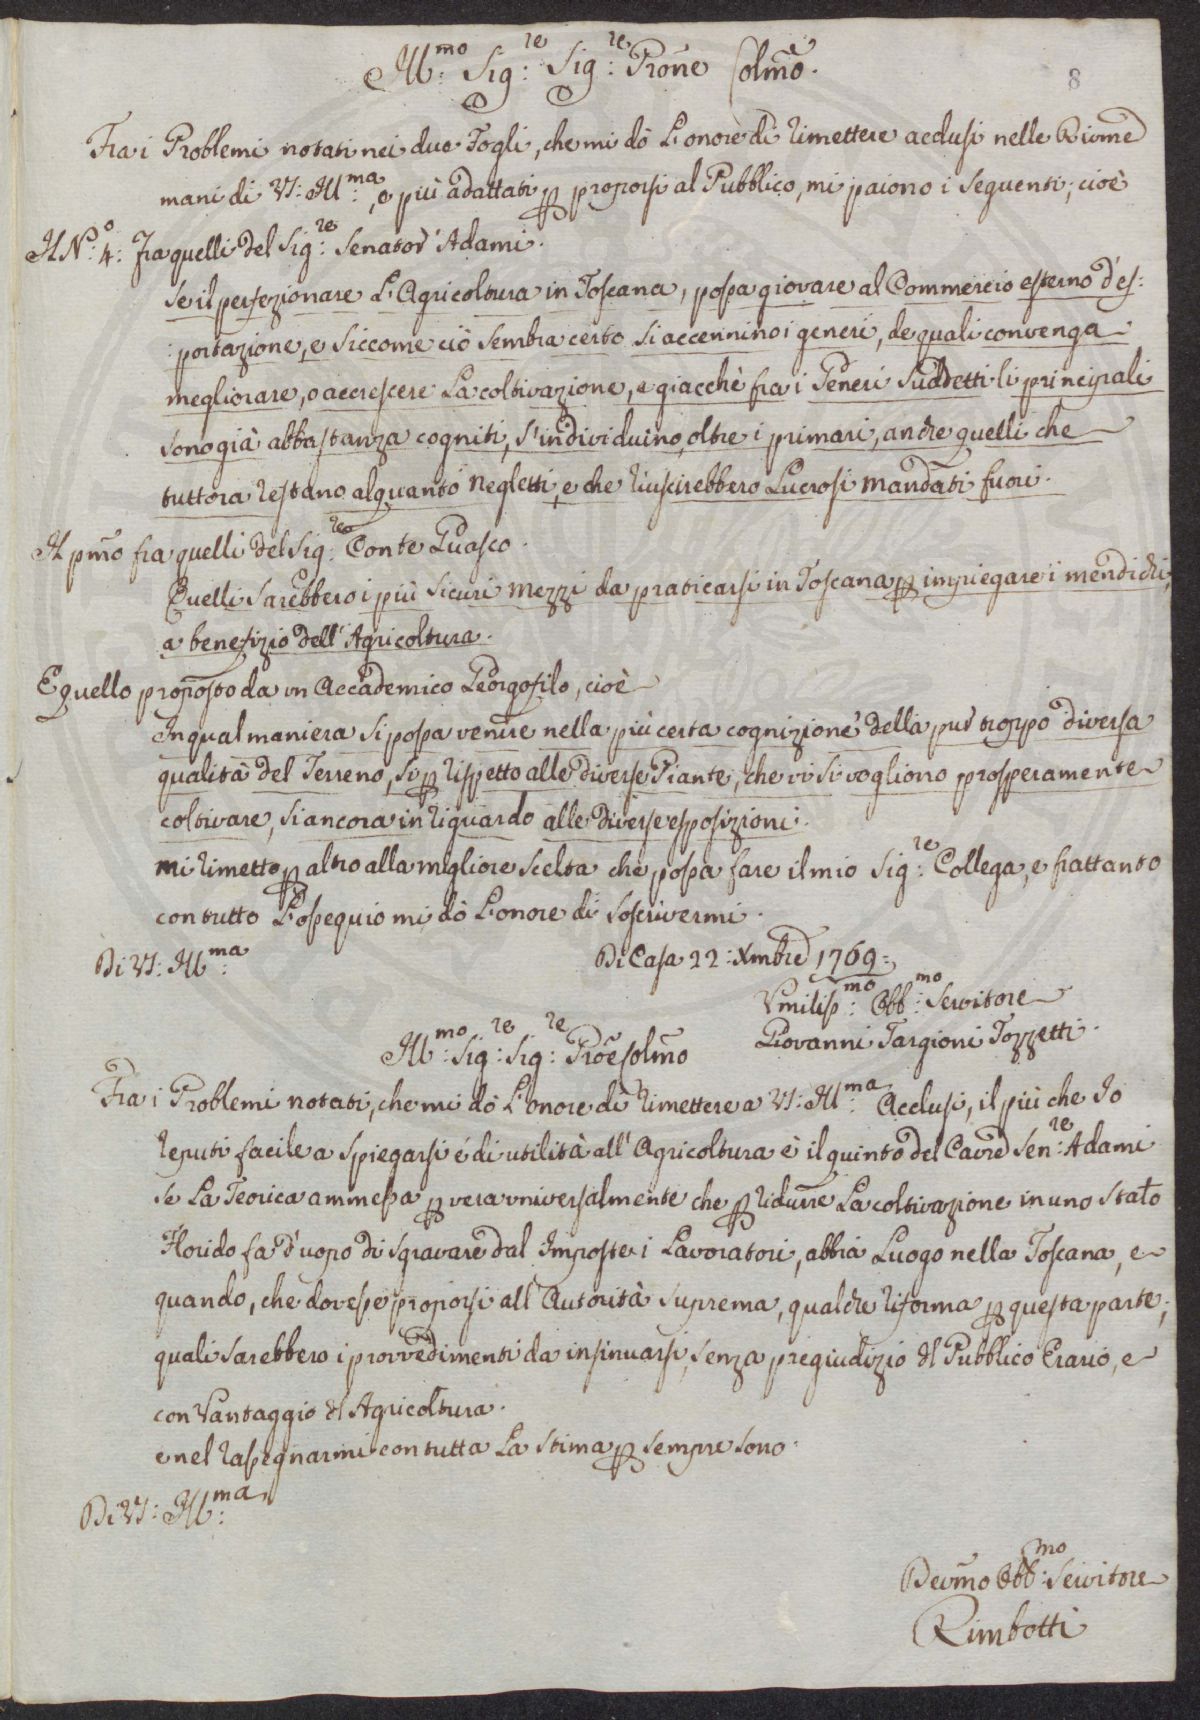 Ill:mo Sig:re Sig:re Prone Colmo.
8
Fra i Problemi notati nei due Fogli, che mi dò L'onore di rimettere acclusi nelle Riv.me
mani di VS: Ill:ma, e più adattati p proporsi al Pubblico, mi paiono i seguenti; cioè
Il N:o 4: Fra quelli del Sig:re Senator' Adami.
Se il perfezionare L'Agricoltura in Toscana, possa giovare al Commercio esterno d'es:
:portazione, e siccome ciò sembra certo si accennino i generi, de quali convenga
megliorare, o accrescere La coltivazione, e giacchè fra i Generi Suddetti li principali
sono già abbastanza cogniti, s'individuino, oltre i primari, anche quelli che
tuttora restano alquanto negletti, e che riuscirebbero Lucrosi mandati fuori.
Il pmo fra quelli del Sig:re Conte Guasco.
Quelli Sarebbero i più sicuri mezzi da praticarsi in Toscana p impiegare i mendichi,
a benefizio dell'Agricoltura.
E quello proposto da un Accademico Georgofilo, cioè
In qual maniera si possa venire nella più certa cognizione della pur troppo diversa
qualità del Terreno, si p rispetto alle diverse Piante, che vi si vogliono prosperamente
coltivare, si ancora in riguardo alle diverse esposizioni.
mi rimetto p altro alla migliore scelta che possa fare il mio Sig:re Collega, e frattanto
con tutto L'ossequio mi dò L'onore di Soscrivermi.
Di VS: Ill:ma
Di Casa 22: Xmbre 1769:
Vmiliss:mo Obb:mo Servitore
Giovanni Targioni Tozzetti.
Ill:mo Sig:re Sig:re Proe Colmo
Fra i Problemi notati, che mi dò L'onore di rimettere a VS: Ill:ma Acclusi, il più che Io
reputi facile a spiegarsi é di utilità all'Agricoltura è il quinto del Cavre Sen:re Adami
Se La Teorica ammessa p vera universalmente che p ridurre La coltivazione in uno stato
Florido fa d'uopo di sgravare dal Imposte i Lavoratori, abbia Luogo nella Toscana, e
quando, che dovesse proporsi all'Autorità Suprema, qualche riforma p questa parte;
quali Sarebbero i provvedimenti da insinuarsi, senza pregiudizio dl Pubblico Erario, e
con Vantaggio dl Agricoltura.
e nel rassegnarmi con tutta La stima p sempre sono.
Di VS: Ill:ma
Devmo Obb:mo Servitore
Rimbotti